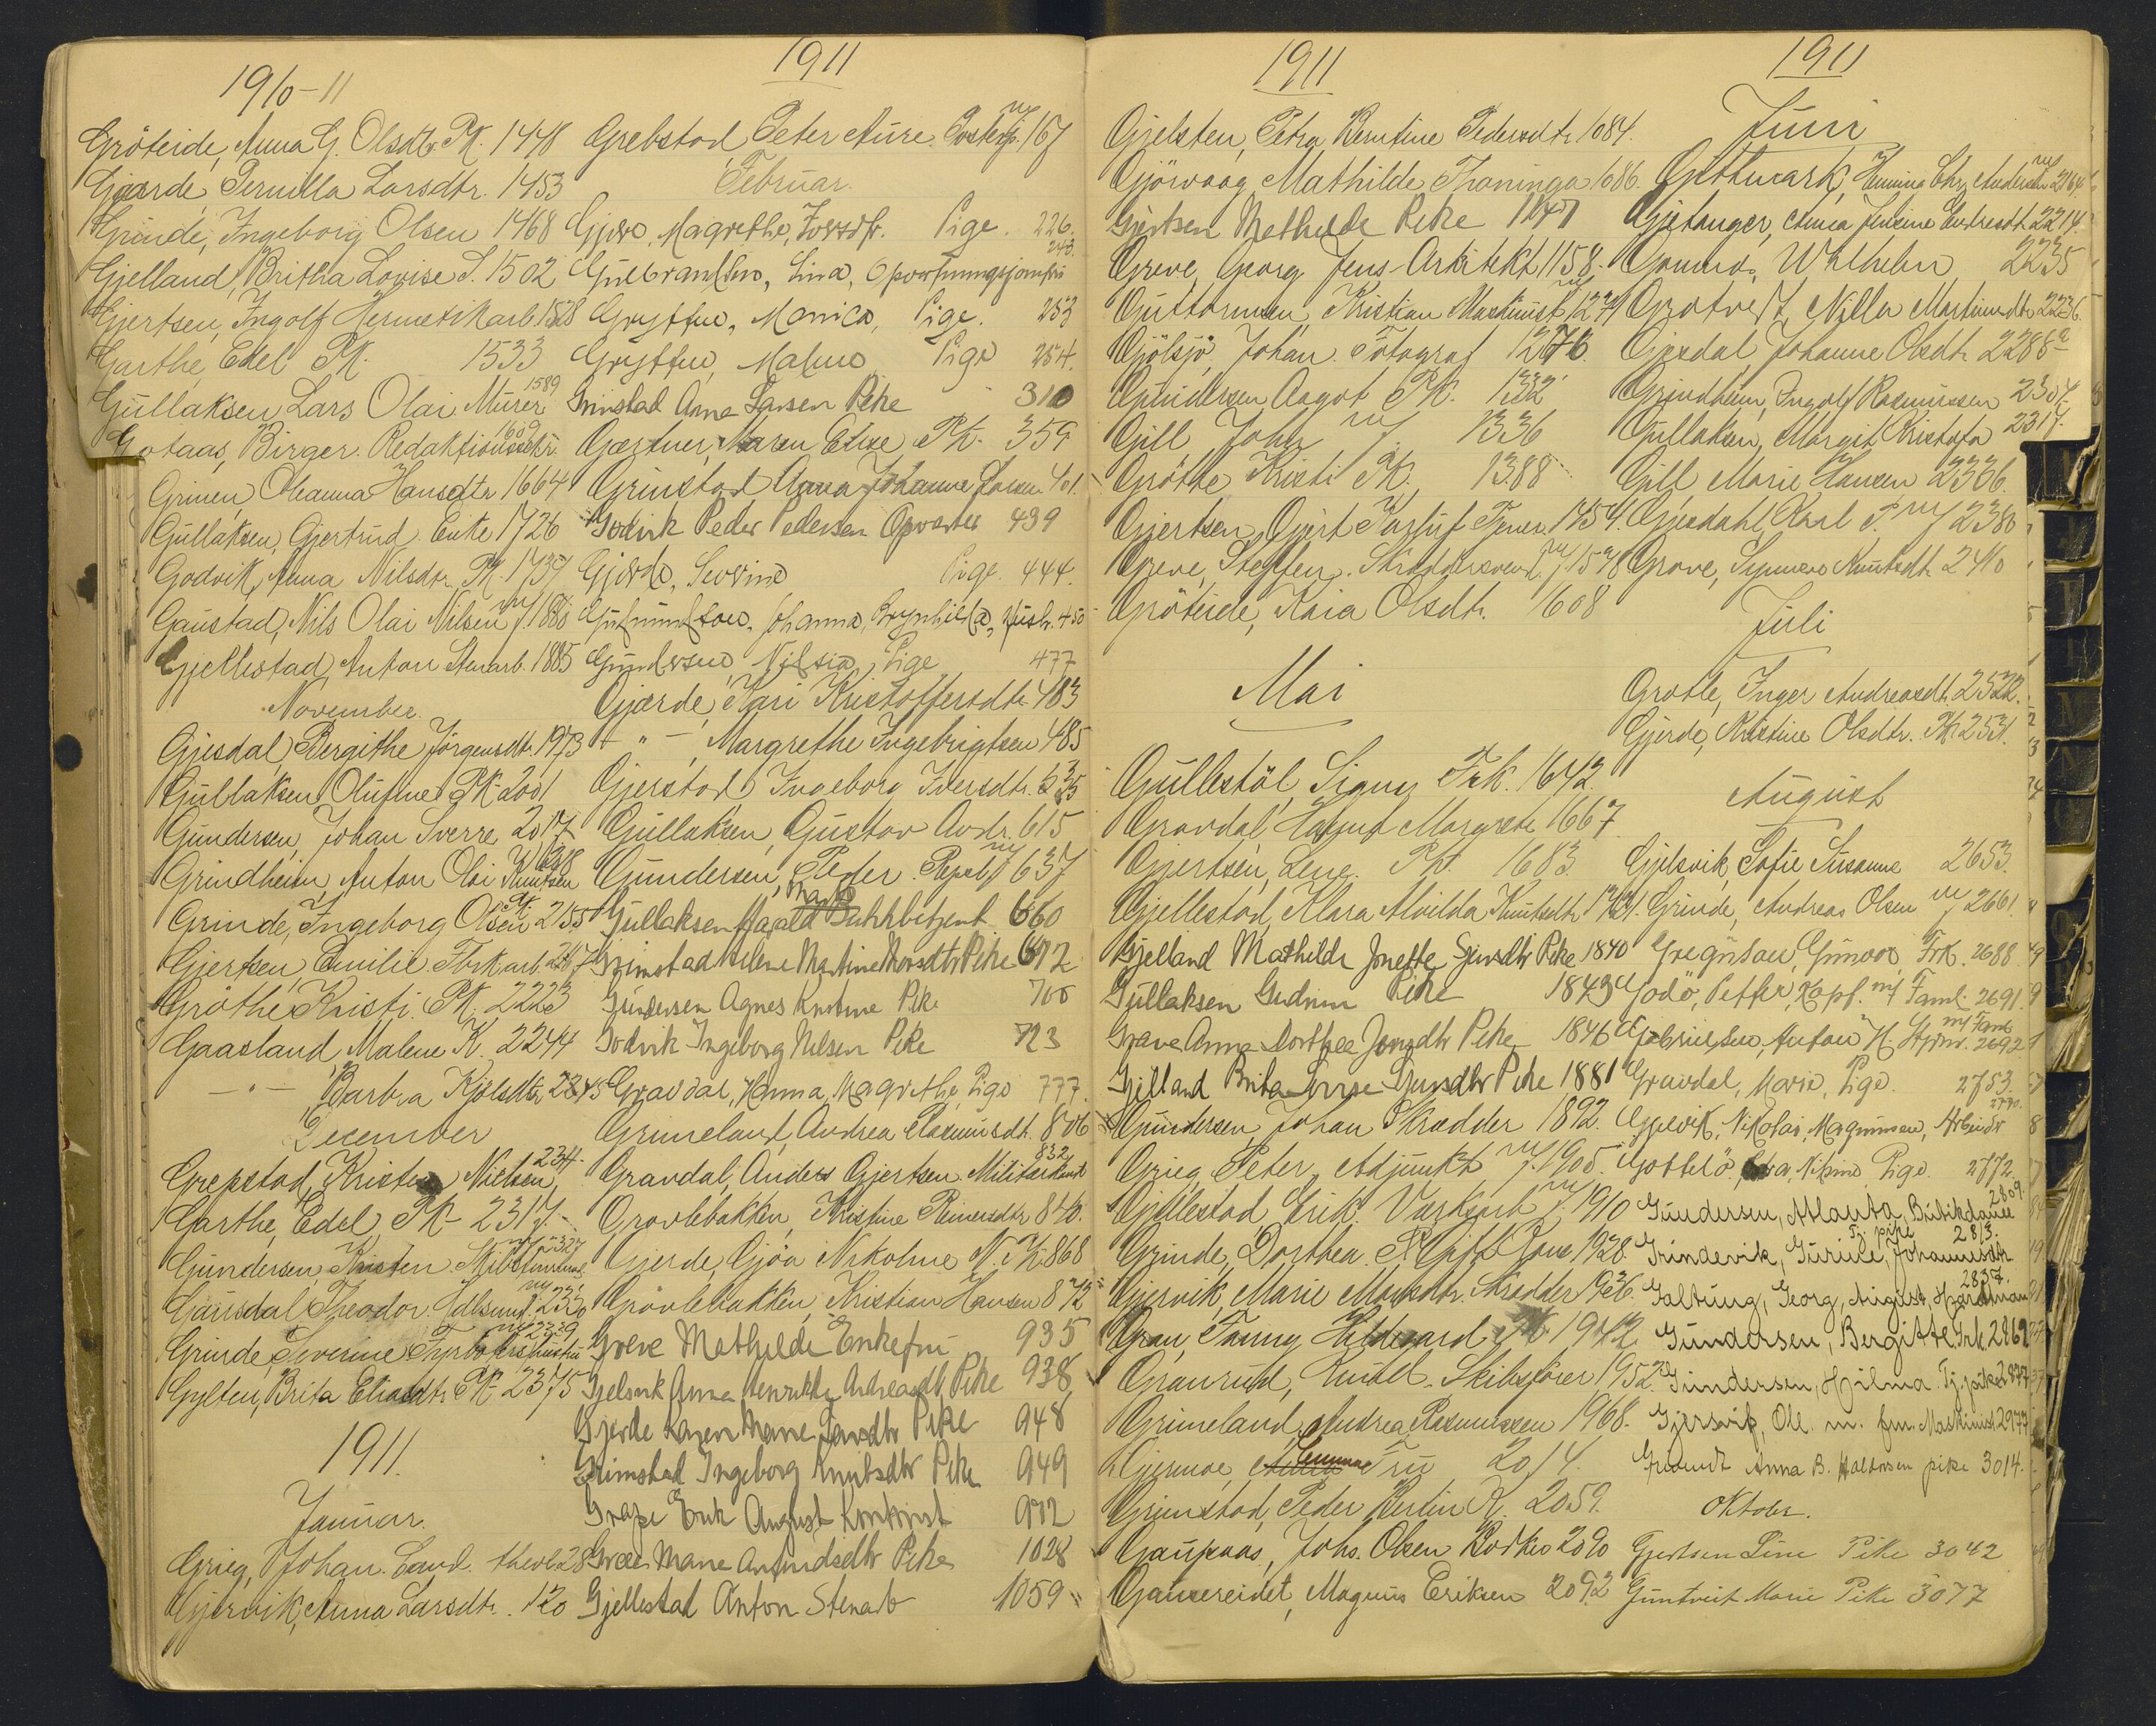 1910-11
Gröteide, Anna G. Olsdtr. Pk. 1448
Gjærde, Pernilla Larsdtr. 1453
Grinde, Ingeborg Olsen 1468
Gjelland, Britha Lovise S. 1502
Gjertsen, Ingolf Hermetikarb. 1528
Garthe, Edel Pk. 1533
Gullaksen Lars Olai Murer 1589
Gotaas, Birger. Redaktionssekr. 1609
Grinen, Oleanna Hansdtr 1664
Gullaksen, Gjertrud. Enke 1726
Godvik, Anna Nilsdtr. Pk. 1737
Gaustad, Nils Olai Nilsen m/f. 1880
Gjellestad, Anton Stenarb. 1885
November.
Gjesdal, Bergithe Jörgensdt. 1973
Gullaksen Olufine Pk. 2001
Gundersen, Johan Sverre 2017
Grindheim, Anton Olai Knutsen
Grinde, Ingeborg Olsen Pk. 2155
Gjertsen, Emilie. Fbrkarb.
Gröthe Kristi. Pk. 2223
Gaasland, Malene K. 2244
— " — Barbra Kjelsdtr. 2245
December
Grepstad, Kristen Nielsen 234
Garthe, Edel Pk. 2317.
Gundersen, Kristen
Gausdal Theodor
Grinde, Severine 2339
Gylten, Brita Eliasdtr. Pk. 2375
1911.
Januar.
Grieg, Johan. Cand. theol. 28
Gjervik, Anna Larsdtr. 120
1911
Grebstad Peter Aure. m/f 167
Februar.
Gjerde, Magrethe, Iversdtr. Pige. 226.
Gulbrandsen, Lina, Opvartningsjomfru 243.
Grytten, Monica, Pige. 253
Grytten, Malene Pige 254.
Grinstad Anna Larsen Pike 310
Gærtner, Maren Elise Pk. 359
Grinstad Anna Johanne Larsen. 401
Godvik Peder Pedersen Opvarter 439
Gjerde, Severine Pige. 444.
Gudmundsen, Johanna, Brynhilda, Hush. 450
Gundersen, Nilsia, Pige 477
Gjærde, Kari Kristoffersdtr. 483
— " — Margrethe Ingebrigtsen 485
Gjerstad Ingeborg Iversdtr. 535
Gullaksen, Gustav Andr. 615
Gundersen, Peder. m/f 637
Gullaksen Harald 660
Grimstad Helene Martine Monsdtr Pike 692
Gundersen Agnes Kristine Pike 700
Godvik Ingeborg Nelsen Pike 723
Gravdal, Hanna, Magrethe, Pige 777.
Grimeland, Andrea Rasmusdt. 806
Gravdal, Anders Gjertsen. 832
Gravlebakken, Kristine Reinersdtr 840.
Gjerde, Gjöa Nikoline N. Pk. 868
Grövlebakken, Kristian Hansen 872
Greve Mathilde Enkefru 935
Gjelsvik Anna Henrikke Andreasdtr Pike 938
Gjerde Karen Marie Larsdtr Pike 948
Grimstad Ingeborg Knutsdtr Pike 949
Grape Erik August 972
Marie Pike 1028
Gjellestad Anton Stenarb 1059
1911
Gjelsten, Petra Berntine Pedersdtr. 1084.
Gjövaag Mathilde Thaninga 1086.
Gjertsen Mathilde Pike 1147
Greve, Georg Jens - Arkitekt 1158.
Guttormsen, Kristian Maskinist m/f 1274
Gjölsjö, Johan. Fotograf 1276.
Gundersen Aagot Pk. 1332
Gill John m/f 1336
Gröthe Kristi Pk. 1388
Gjertsen, Gjert 1454.
Greve, Steffen. Skræddersvend m/f 1598
Gröteide, Kaia Olsdtr. 1608
Mai
Gullestöl, Signy Frk. 1642.
Gravdal, Margrete 1667
Gjertsen, Lene. Pk. 1683.
Gjellestad, Klara Alvilda Knutsdtr
Gjelland Mathilde Jnette Pike 1840
Gullaksen Gudrun Pike 1843
Grave Anna Dorthea Jonsdtr Pike 1846
Gjelland Brita Pike 1881
Gundersen, Johan Skrædder 1892.
Grieg, Peter, Adjunkt m/f. 1905.
Gjellestad Erik. m/f 1910
Grinde, Dorthea. 1928.
Gjervik, Marie Monsdtr. Skrædder 1936.
Grau, Fanny Hildegard Frk. 1942
Granrud, Skibsfører 1952.
Grimeland, Andrea Rasmussen 1968.
Gjermoe, Emma Fru 2014.
Grimstad, Peder Bertin R. 2059.
Gaupaas, Johs. Olsen 2090
Gausereidet, Magnus Eriksen 2092
1911
Juni
Gethmark, Henning Chr. Andersen m/f 2164
Gjetanger, Anna Jensine Endresdt. 2214.
Wilhelm 2235
Grotvedt, Nilla Martinusdtr. 2236.
Gjesdal Johanne Olsdtr. 2288
Grindheim, Ingolf Rasmussen 2304.
Gullaksen, Margit Kristofa 2317.
Gill Marie Hansen 2336.
Gjesdahl, Karl T. m/f 2380
Grove, Synneve Knutsdtr. 2410
Juli
Grotle, Inger Andreasdt. 2522.
Gjerde, Kristine Olsdtr. Pk. 2531.
August
Gjelsvik, Sofie Susanne 2653.
Grinde, Andreas Olsen m/f 2661.
Gregusen, Gunvor, Frk. 2688.
Godö, Petter, Kapt. m/ Faml. 2691.
Gabrielsen, Anton H. Styrm. m/ Faml. 2692.
Gravdal, Marie, Pige. 2753.
Gjervik, Nikolai, Magnussen, Arbeider 2770.
Gottelö, Nikoline Pige. 2772.
Gundersen, Atlanta, Butikdame 2809.
Grindevik, Gurine, Johannesdtr Tj. pike 2813.
Galtung, Georg, August, Hardtman 2837.
Gundersen, Bergitte Frk. 2869
Gundersen, Hilma. Tj. pike 2877
Gjersvik, Ole. m. fm. Maskinist 2977
Anna B. Haltorsen pike 3014.
Oktober.
Gjertsen Line Pike 3042
Guntveit Marie Pike 3077